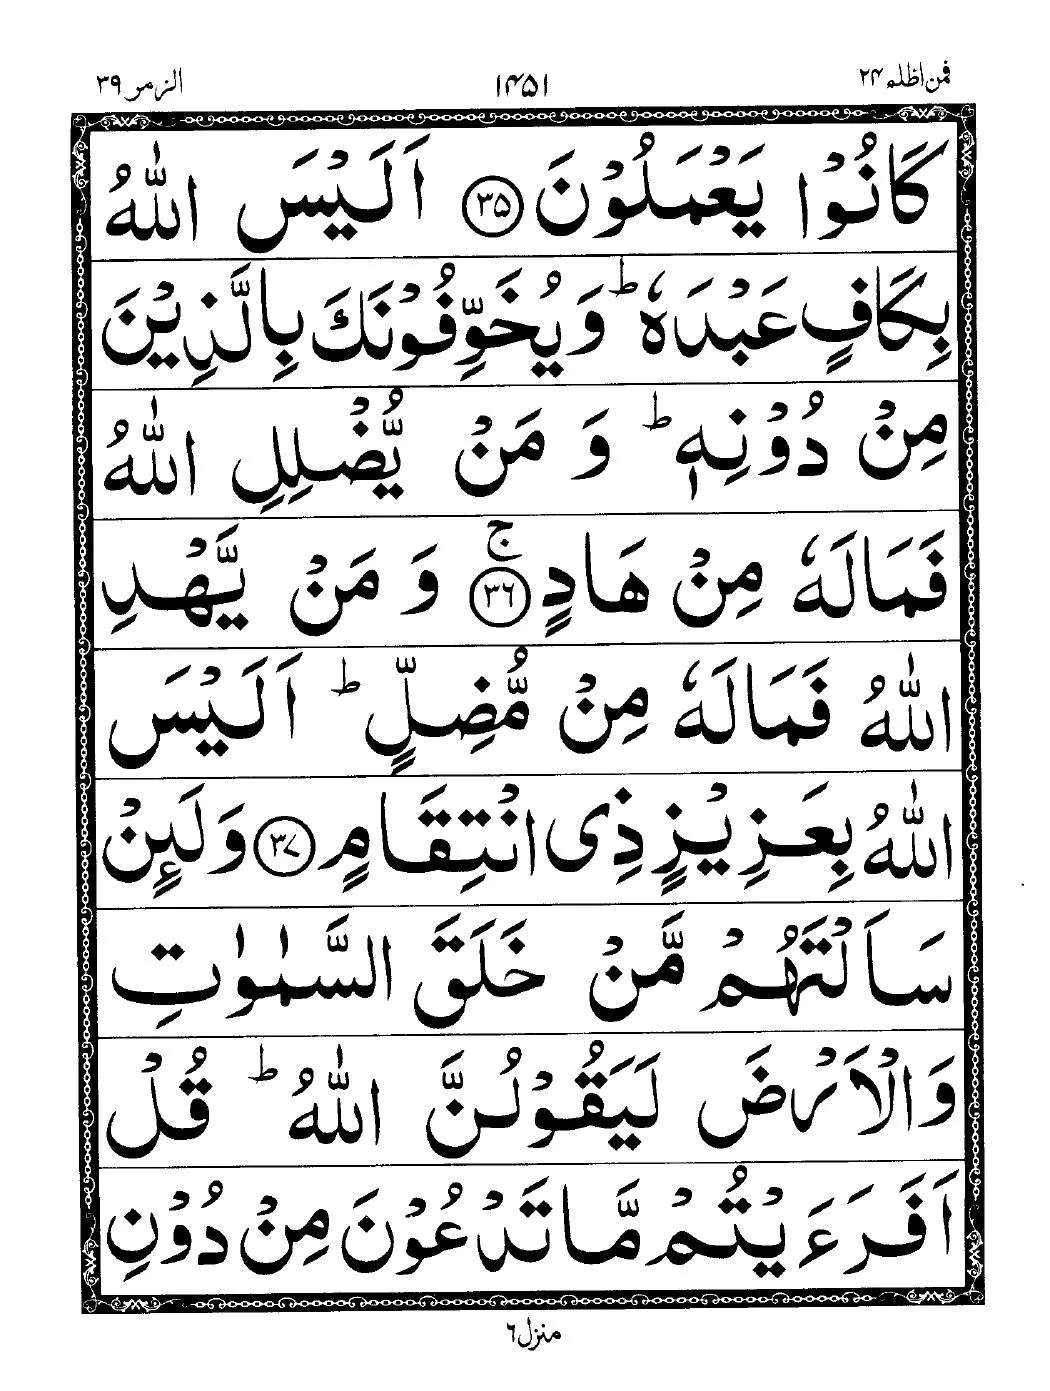 الزمر ٣٩ ١٤٥١ فمن اظلم ٢٤
كَانُوْا يَعْمَلُوْنَ ﴿٣٥﴾ اَلَيْسَ اللّٰهُ
بِكَافٍ عَبْدَهٗ ؕ وَيُخَوِّفُوْنَكَ بِالَّذِيْنَ
مِنْ دُوْنِهٖ ؕ وَ مَنْ يُّضْلِلِ اللّٰهُ
فَمَالَهٗ مِنْ هَادٍ ﴿٣٦﴾ ۚ وَ مَنْ يَّهْدِ
اللّٰهُ فَمَالَهٗ مِنْ مُّضِلٍّ ؕ اَلَيْسَ
اللّٰهُ بِعَزِيْزٍ ذِى انْتِقَامٍ ﴿٣٧﴾ وَلَئِنْ
سَاَلْتَهُمْ مَّنْ خَلَقَ السَّمٰوٰتِ
وَالْاَرْضَ لَيَقُوْلُنَّ اللّٰهُ ؕ قُلْ
اَفَرَءَيْتُمْ مَّا تَدْعُوْنَ مِنْ دُوْنِ
منزل ٦